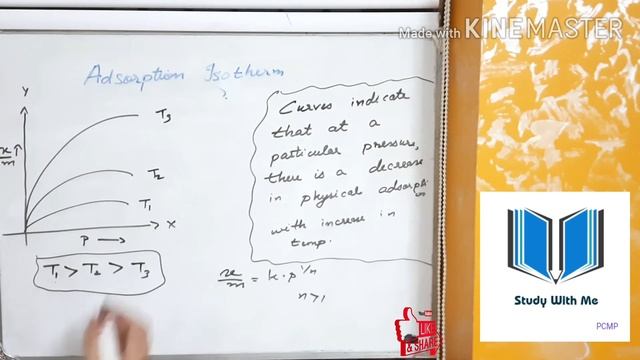 Made with KINEMASTER
Adsorption Isotherm
?
Y
T3
T2
T1
x/m ↑
X
P →
T1 > T2 > T3
Curves indicate
that at a
particular pressure,
there is a decrease
in physical adsorption
with increase in
temp.
x/m = k · p^1/n
n > 1
LIKE
& SHARE
Study With Me
PCMP